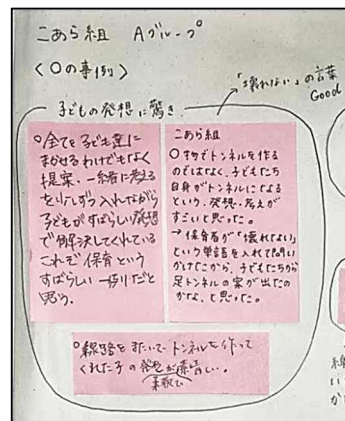 こあら組 Aグループ
〈〇の事例〉
子どもの発想に驚き
「壊れない」の言葉
Good
〇全てを子ども達に
まかせるわけでもなく
提案、一緒に考える
を少しずつ入れながら
子どもがすばらしい発想
で解決してくれている
これぞ保育という
すばらしい一例だと
思う。
こあら組
〇物でトンネルを作る
のではなく、子どもたち
自身がトンネルになる
という、発想・考えが
すごいと思った。
→保育者が「壊れない」
という単語を入れて問い
かけたから、子どもたちから
足トンネルの案が出たの
かな、と思った。
〇線路を引いてトンネルを作って
くれた子の発想が素晴しい。
素敵で
線
い
か